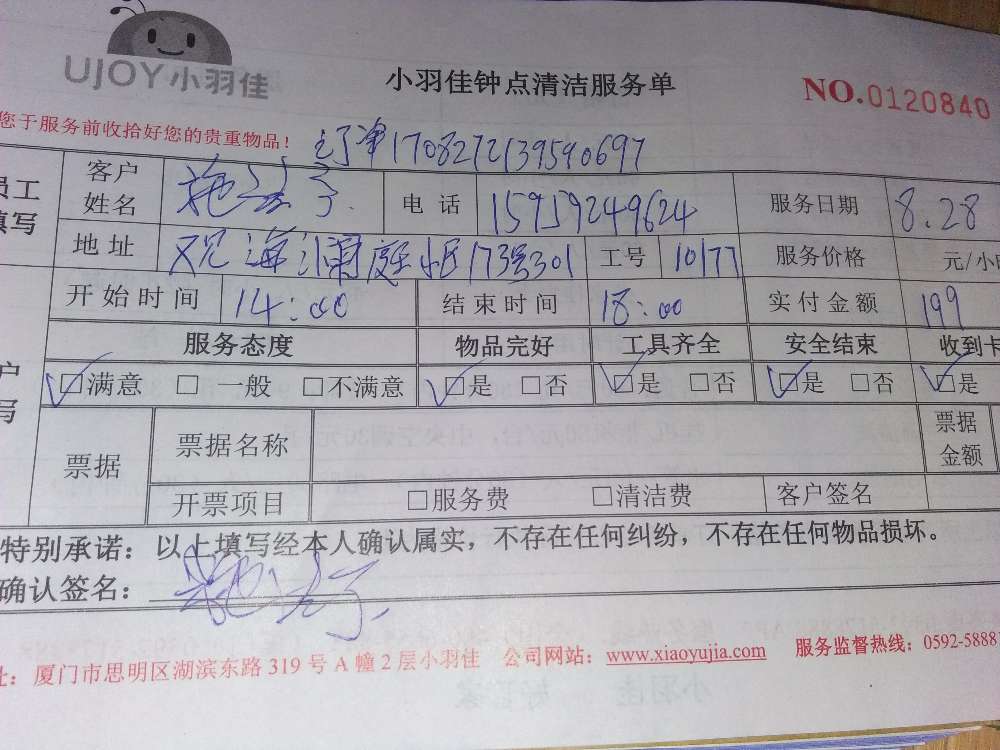 UJOY小羽佳
小羽佳钟点清洁服务单
NO.0120840
您于服务前收拾好您的贵重物品！
1708272139590697
员工填写
客户姓名 电话 15959249624 服务日期 8.28
地址 观海 173号301 工号 10177 服务价格 元/小
开始时间 14:00 结束时间 18:00 实付金额 199
服务态度 物品完好 工具齐全 安全结束 收到卡
☑满意 □一般 □不满意 ☑是 □否 ☑是 □否 ☑是 □否 ☑是
票据 票据名称 票据金额
开票项目 □服务费 □清洁费 客户签名
特别承诺：以上填写经本人确认属实，不存在任何纠纷，不存在任何物品损坏。
确认签名：
址：厦门市思明区湖滨东路 319 号 A 幢 2 层小羽佳 公司网站：www.xiaoyujia.com 服务监督热线：0592-5888